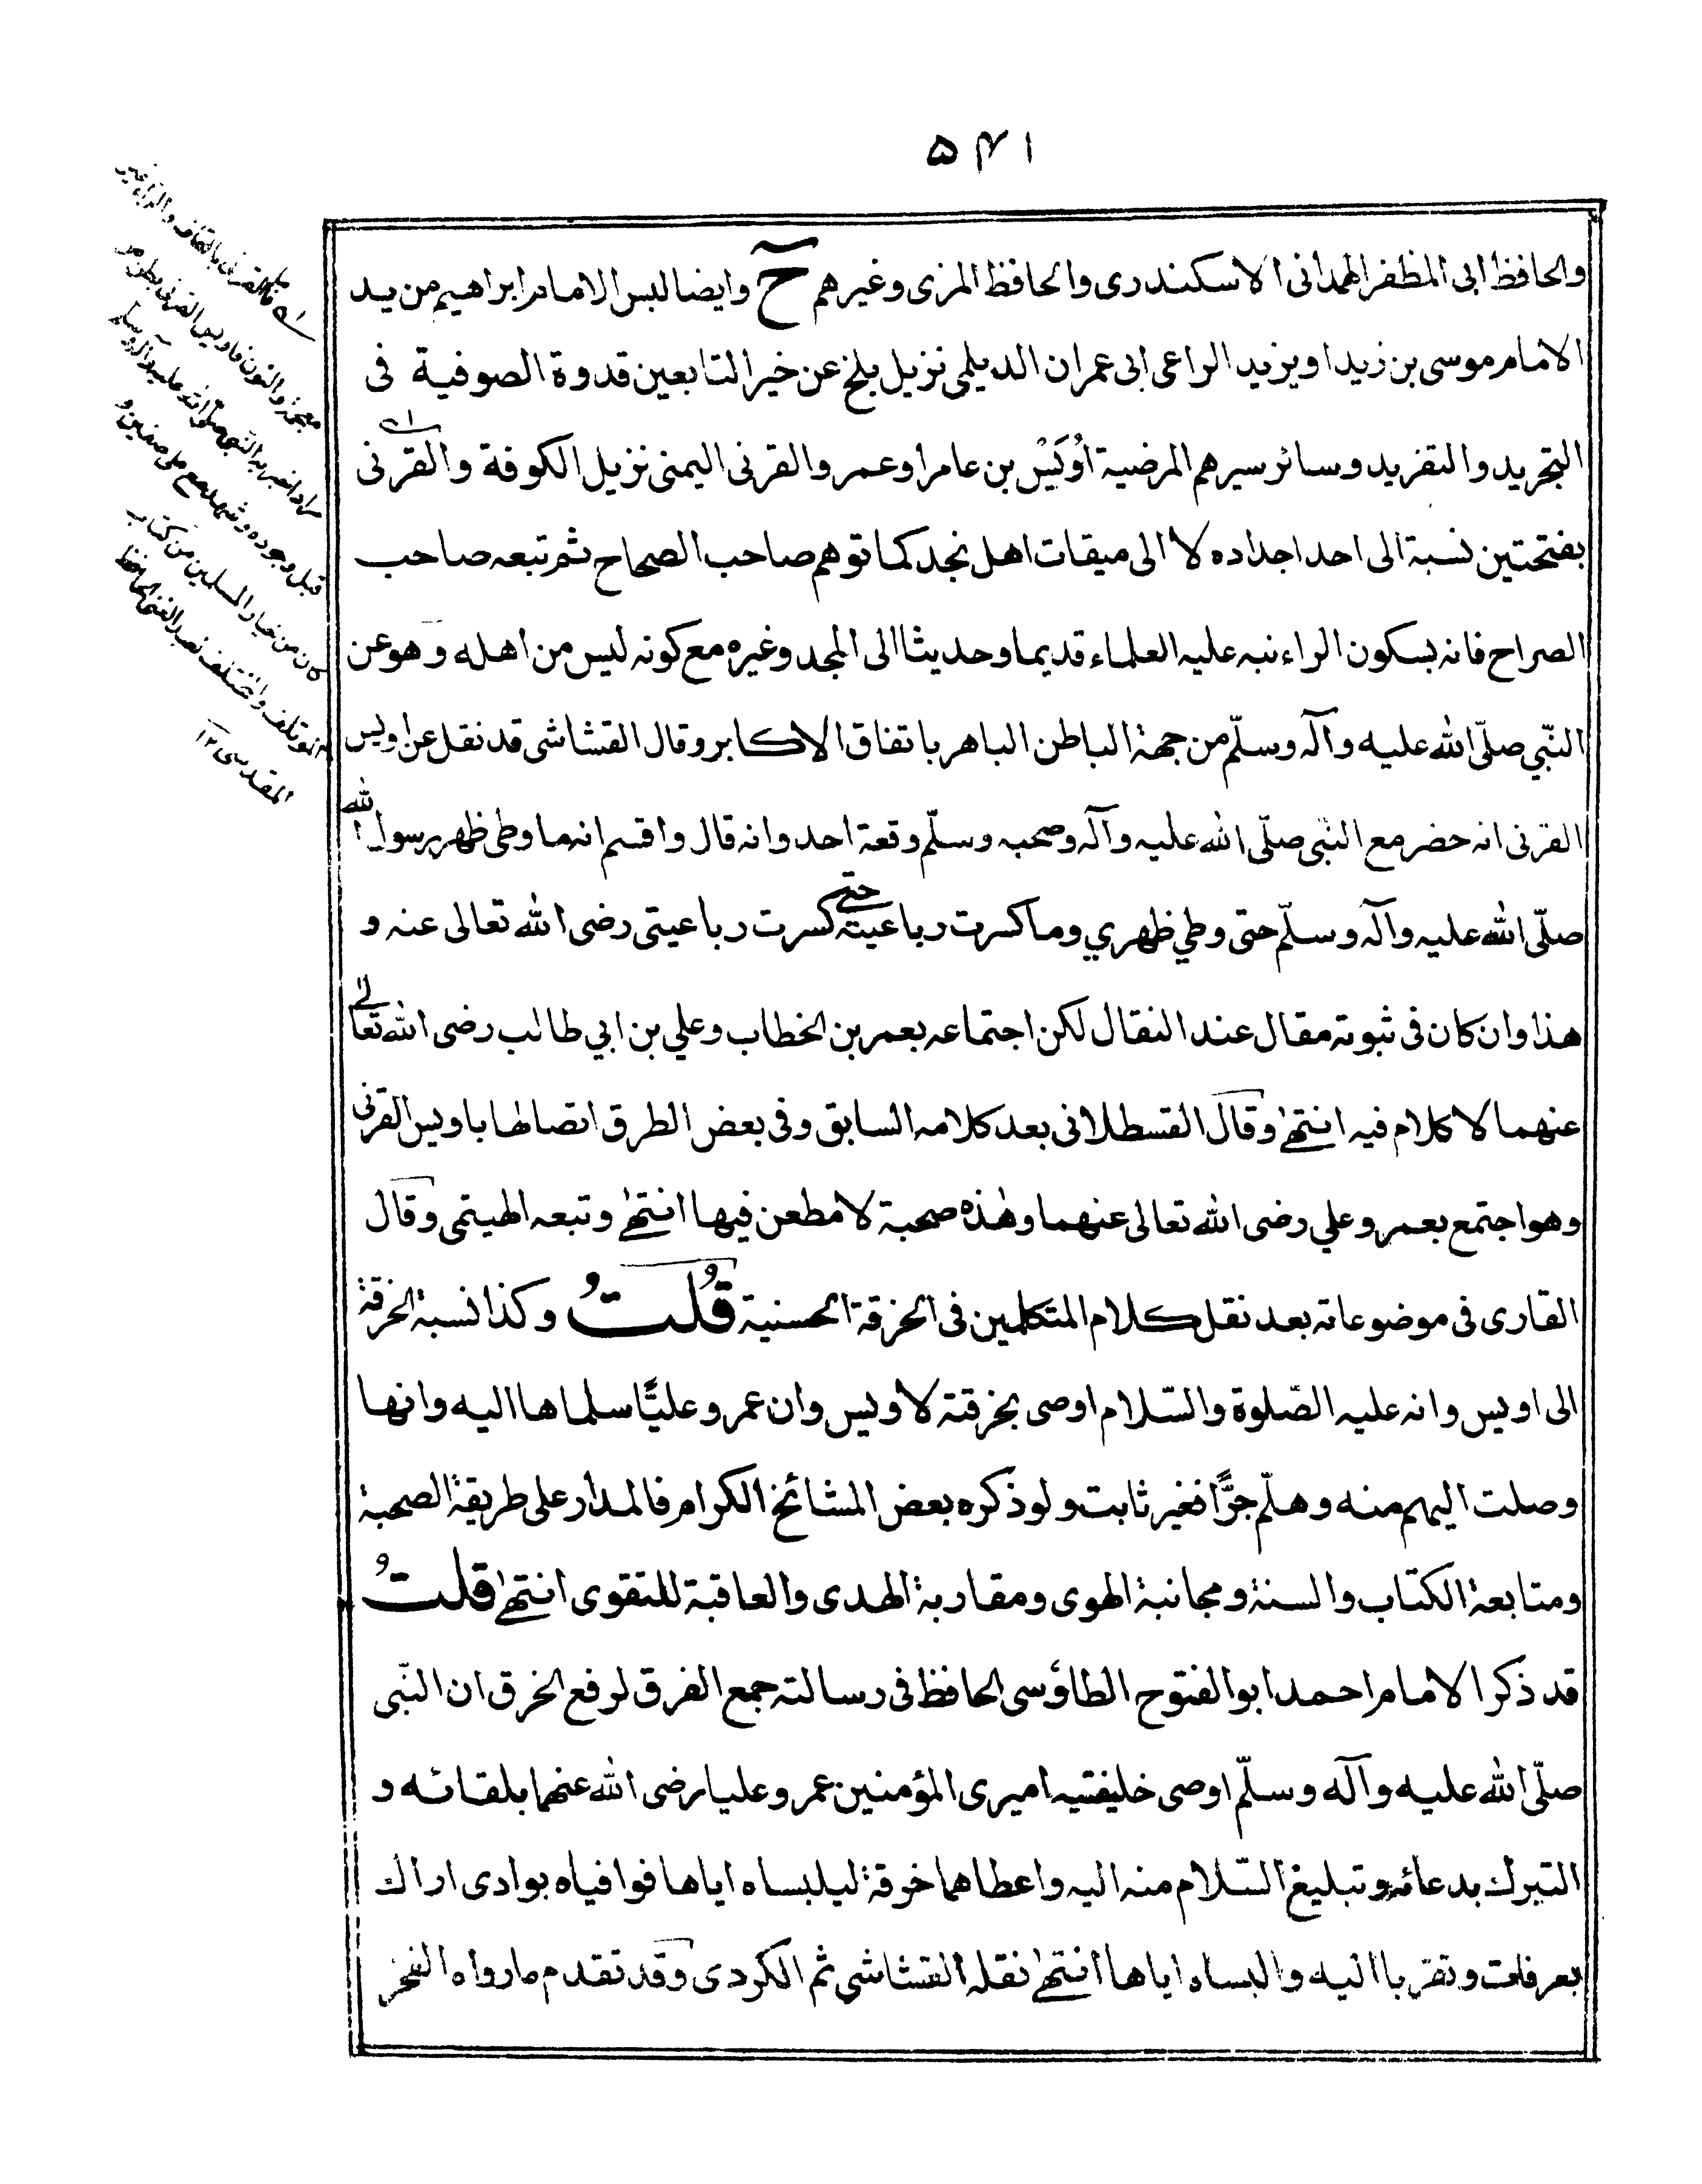 ۵۴۱
والحافظ ابى المظفر الهمدانى الاسكندرى والحافظ المزى وغيرهم ح وايضا لبس الامام ابراهيم من يد
الامام موسى بن زيد او يزيد الراعى ابى عمران الديلمى نزيل بلخ عن خير التابعين قدوة الصوفية فى
التجريد والتفريد وسائر سيرهم المرضية اُوَيْس بن عامر او عمرو القرنى اليمنى نزيل الكوفة والقرنى
بفتحتين نسبة الى احد اجداده لا الى ميقات اهل نجد كما توهم صاحب الصحاح ثم تبعه صاحب
الصراح فانه بسكون الراء نبه عليه العلماء قديما وحديثا الى المجد وغيره مع كونه ليس من اهله وهو عن
النّبي صلّى الله عليه وآله وسلّم من جهة الباطن الباهر باتفاق الاكابر وقال القشاشى قد نقل عن اويس
القرنى انه حضر مع النّبى صلّى الله عليه وآله وصحبه وسلّم وقعة احد وانه قال واقسم انه ما وطى ظهر رسول الله
صلّى الله عليه وآله وسلّم حتى وطي ظهري وما كسرت رباعيته حتے كسرت رباعيتى رضى الله تعالى عنه و
هذا وان كان فى ثبوته مقال عند النقال لكن اجتماعه بعمر بن الخطاب وعلي بن ابي طالب رضى الله تعالے
عنهما لا كلام فيه انتهےٰ وقال القسطلانى بعد كلامه السابق وفى بعض الطرق اتصالها باويس القرنى
وهو اجتمع بعمر وعلي رضى الله تعالى عنهما وهٰذه صحبة لا مطعن فيها انتهےٰ وتبعه الهيتمى وقال
القارى فى موضوعاته بعد نقل كلام المتكلمين فى الخرقة الحسنية قُلتُ وكذا نسبة الخرقة
الى اويس وانه عليه الصّلوة والسّلام اوصى بخرقته لاويس وان عمر وعليًّا سلماها اليه وانها
وصلت اليهم منه وهلّم جرًّا فغير ثابت ولو ذكره بعض المشائخ الكرام فالمدار على طريقة الصحبة
ومتابعة الكتاب والسنة ومجانبة الهوى ومقاربة الهدى والعاقبة للتقوى انتهےٰ قلتُ
قد ذكر الامام احمد ابو الفتوح الطاوٗسى الحافظ فى رسالته جمع الفرق لرفع الخرق ان النّبى
صلّى الله عليه وآله وسلّم اوصى خليفتيه اميرى المؤمنين عمر وعليا رضى الله عنهما بلقائه و
التبرك بدعائه وتبليغ السّلام منه اليه واعطاهما خرقة ليلبساه اياها فوافياه بوادى اراك
بعرفات وتقربا اليه والبساه اياها انتهےٰ نقله القشاشى ثم الكردى وقد تقدم ما رواه الفخر
القرنى بالقاف والراء غير
معجمة والنون فاويس القرنى بطن من
مراد اخبر به النّبى صلّى الله عليه وآله وسلم
قبل وجوده وشهد مع على صفين و
كان من خيار المسلمين من كتاب
المؤتلف والمختلف لعبد الغنى الحافظ
المقدسى ١٢